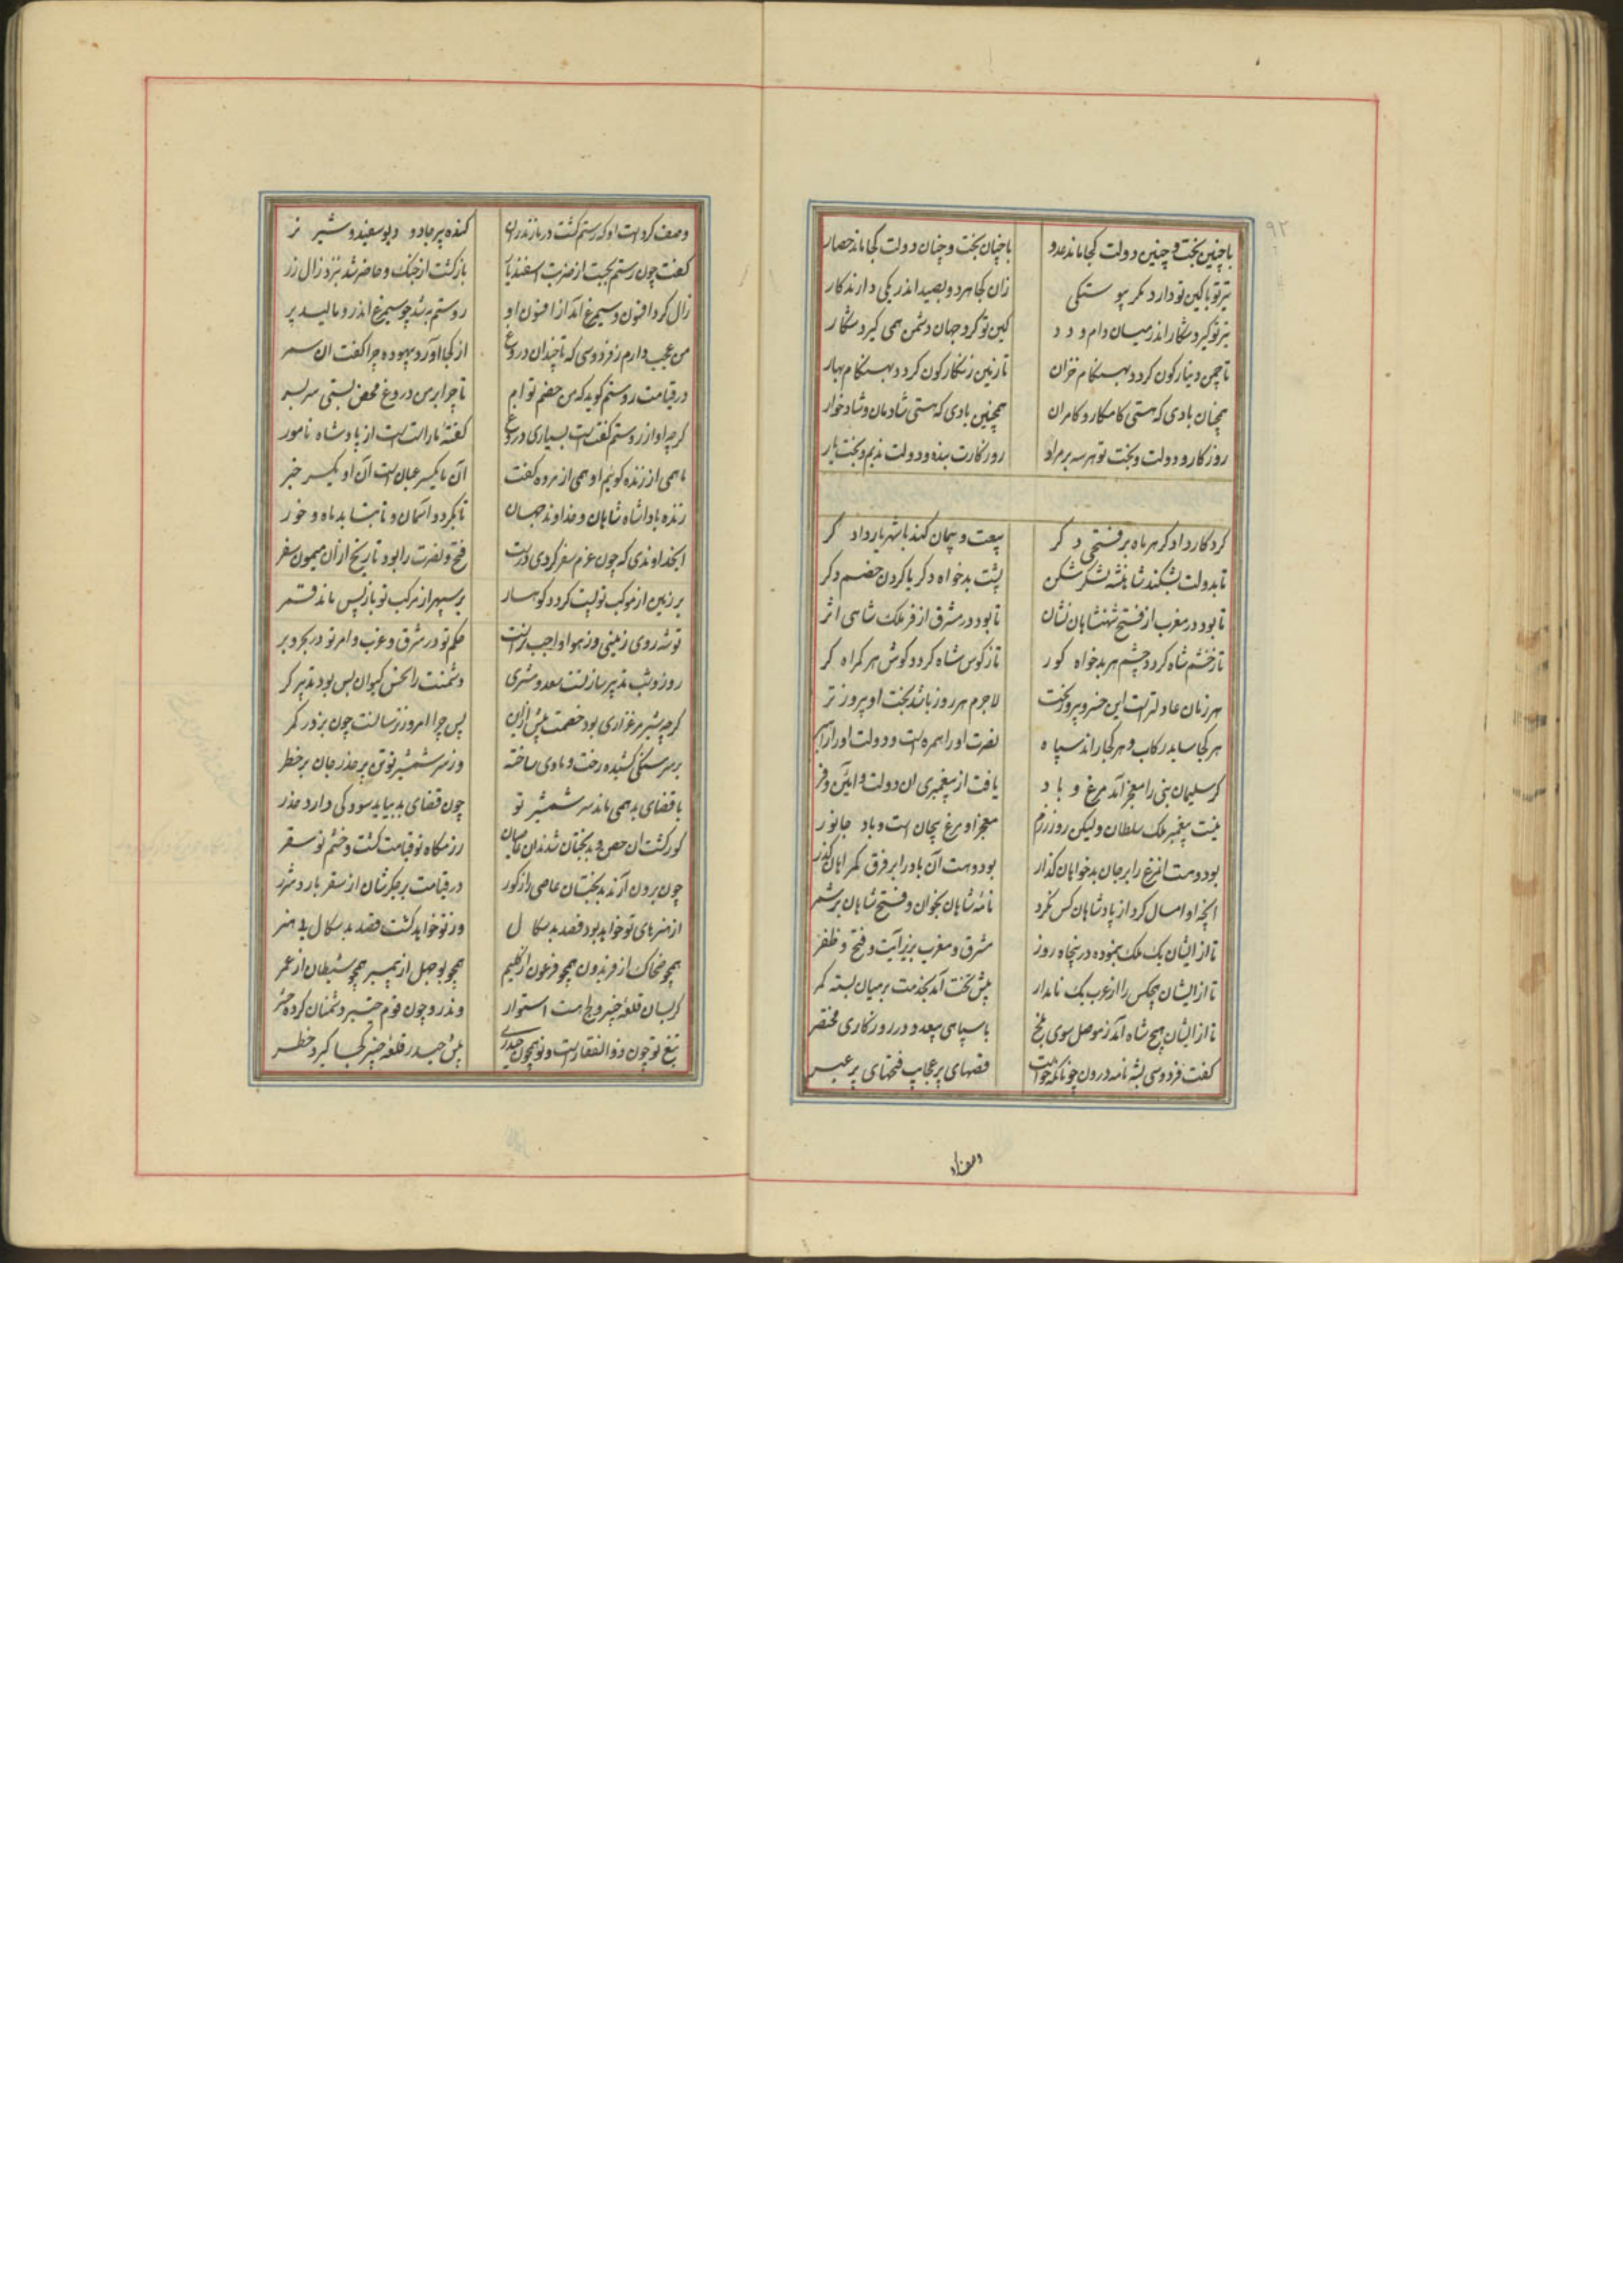 ۹۲
با چنین بخت و چنین دولت کجا ماند عدو با چنان بخت و چنان دولت کجا ماند حصار
تیر تو با کین تو دارد مکر پیوستکی زان کجا هر دو بصید اندر یکی دارند کار
تیر تو کیرد شکار اندر میان دام و دد کین تو کرد جهان دشمن همی کیرد شکار
تا چمن دینار کون کردد بهنکام خزان تا زمین زنکار کون کردد بهنکام بهار
همچنان بادی که هستی کامکار و کامران همچنین بادی که هستی شادمان و شادخوار
روزکار و دولت و بخت تو هر سه بر مراد روزکارت بنده و دولت ندیم و بخت یار
کردکار دادکر هر ماه بر فتحی دکر بیعت و پیمان کند با شهریار دادکر
تا بدولت بشکند شاهنشه لشکر شکن پشت بدخواه دکر یا کردن خصم دکر
تا بود در مغرب از فتح شهنشاهان نشان تا بود در مشرق از فر ملک شاهی اثر
تا ز خشم شاه کردد چشم هر بدخواه کور تا ز کوس شاه کردد کوش هر کمراه کر
هر زمان عادلتر است این خسرو پیروز بخت لاجرم هر روز باشد بخت او پیروز تر
هر کجا ساید رکاب و هر کجا راند سپاه نصرت او را همره است و دولت او را
کر سلیمان نبی را معجز آمد مرغ و باد یافت از پیغمبری ان دولت و ایین و فر
نیست پیغمبر ملک سلطان ولیکن روز رزم معجز او مرغ بیجان است و باد جانور
بود و هست انمرغ را بر جان بدخواهان کذار بود و هست آن باد را بر فرق کمراهان کذر
انچه او امسال کرد از پادشاهان کس نکرد نامه شاهان بخوان و فتح شاهان بر شمر
تا از ایشان یک ملک بنموده در پنجاه روز مشرق و مغرب بزیر آیت و فتح و ظفر
تا از ایشان هیچکس را از عرب یک نامدار پیش تخت آمد بخدمت بر میان بسته کمر
تا از ایشان هیچ شاه آمد ز موصل سوی بلخ با سپاهی بیعد و در روزکاری مختصر
کفت فردوسی بشهنامه درون چونانکه خواست قصهای پر عجایب فتحهای پر عبر
وصف کرد
وصف کرد است او که رستم کشت در مازندران کنده پیر جادو و دیو سفید و شیر نر
کفت چون رستم بجست از ضربت اسفندیار بازکشت از جنک و حاضر شد بنزد زال زر
زال کرد افسون و سیمرغ آمد از افسون او روستم به شد چو سیمرغ اندرو مالید پر
من عجب دارم ز فردوسی که تا چندان دروغ از کجا آورد و بیهوده چرا کفت ان سمر
در قیامت روستم کوید که من خصم توام تا چرا بر من دروغ محض بستی سر بسر
کرچه او از روستم کفت است بسیاری دروغ کفته ما راست است از پادشاه نامور
ما همی از زنده کوئیم او همی از مرده کفت آن ما یکسر عیان است آن او یکسر خبر
زنده بادا شاه شاهان و خداوند جهان تا بکردد آسمان و تا بتابد ماه و خور
ایخداوندی که چون عزم سفر کردی درست فتح و نصرت را بود تاریخ از ان میمون سفر
بر زمین از موکب تو پست کردد کوهسار بر سپهر از مرکب تو بازپس ماند قمر
تو شه روی زمینی وز هوا واجب تراست حکم تو در شرق و غرب و امر تو در بحر و بر
روز و شب تدبیر ساز تست سعد و مشتری دشمنت را نحس کیوان بس بود تدبیر کر
کرچه شیر مرغزاری بود خصمت پیش ازین پس چرا امروز ترسانست چون بز در کمر
بر سر سنکی کشیده رخت و ماوی ساخته وز سر شمشیر تو تن بر حذر جان بر خطر
با قضای بد همی ماند سر شمشیر تو چون قضای بد بیاید سود کی دارد حذر
کور کشت ان حصن و بدبختان شدند ان عاصیان رزمکاه تو قیامت کشت و خشم تو سقر
چون برون آرند بدبختان عاصی را ز کور در قیامت بر جکرشان از سقر بارد شرر
از هنرهای تو خواهد بود قصد بدسکال ور تو خواهد کشت قصد بدسکال بی هنر
همچو ضحاک از فریدون همچو فرعون از کلیم همچو بوجهل از پیمبر همچو شیطان از عمر
کر بسان قلعه خیبر و بلخ است استوار وندر و چون قوم خیبر دشمنان کرده حشر
تیغ تو چون ذوالفقار است و تو همچون حیدری پیش حیدر قلعه خیبر کجا کیرد خطر